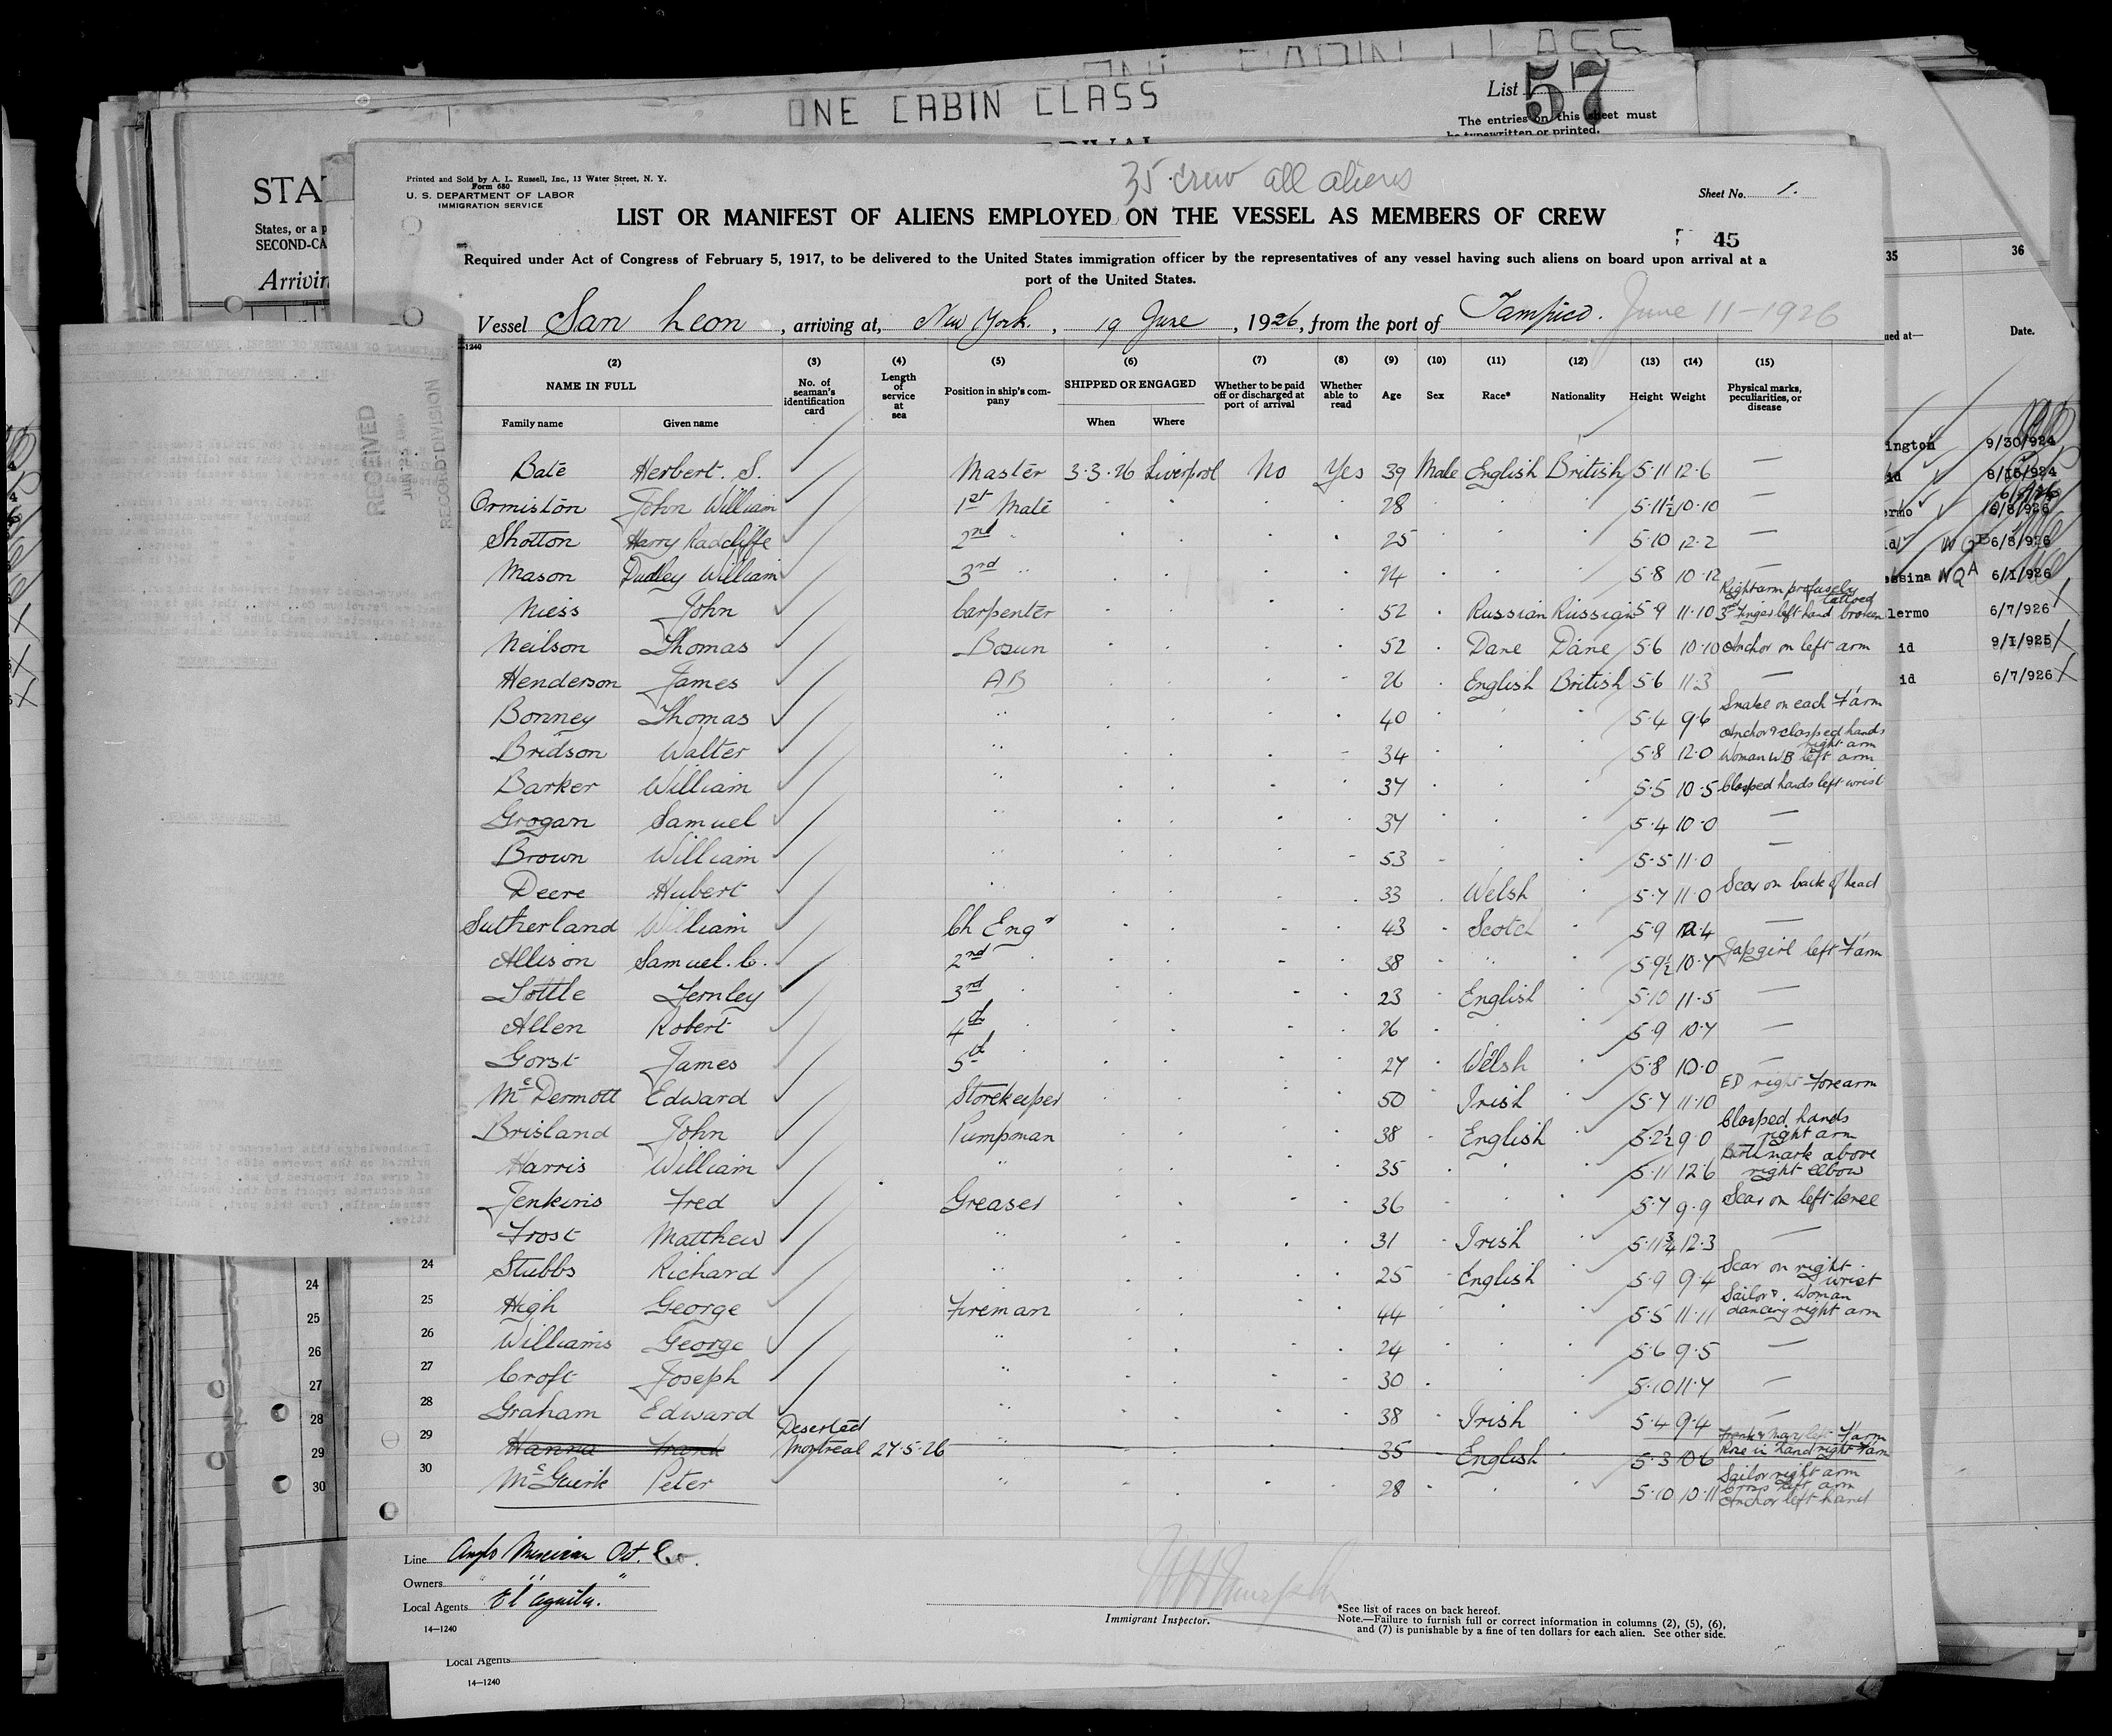 ONE CABIN CLASS
List 57
The entries on this sheet must
be typewritten or printed.
STA
States, or a p
SECOND-CA
Arrivin
35 crew all aliens
Printed and Sold by A. L. Russell, Inc., 13 Water Street, N. Y.
Form 680
U. S. DEPARTMENT OF LABOR
IMMIGRATION SERVICE
Sheet No. 1.
LIST OR MANIFEST OF ALIENS EMPLOYED ON THE VESSEL AS MEMBERS OF CREW
45
Required under Act of Congress of February 5, 1917, to be delivered to the United States immigration officer by the representatives of any vessel having such aliens on board upon arrival at a
port of the United States.
Vessel San Leon, arriving at, New York., 19 June, 1926, from the port of Tampico. June 11-1926
(2) (3) (4) (5) (6) (7) (8) (9) (10) (11) (12) (13) (14) (15)
NAME IN FULL No. of seaman's identification card Length of service at sea Position in ship's company SHIPPED OR ENGAGED Whether to be paid off or discharged at port of arrival Whether able to read Age Sex Race* Nationality Height Weight Physical marks, peculiarities, or disease
Family name Given name When Where
Bate Herbert. S. Master 3.3.26 Liverpool No Yes 39 Male English British 5.11 12.6 —
Ormiston John William 1st Mate 28 5.11½ 10.10 —
Shotton Harry Radcliffe 2nd " 25 5.10 12.2 —
Mason Dudley William 3rd " 24 5.8 10.12 —
Niess John Carpenter 52 Russian Russian 5.9 11.10 Right arm profusely tattoed 3rd Finger left hand broken
Neilson Thomas Bosun 52 Dane Dane 5.6 10.10 Anchor on left arm
Henderson James AB 26 English British 5.6 11.3 —
Bonney Thomas " 40 5.4 9.6 Snake on each F'arm
Bridson Walter " 34 5.8 12.0 Anchor & clasped hands right arm Woman WB left arm
Barker William " 37 5.5 10.5 Clasped hands left wrist
Grogan Samuel " 37 5.4 10.0 —
Brown William " 53 5.5 11.0 —
Deere Hubert " 33 Welsh 5.7 11.0 Scar on back of head
Sutherland William Ch Engr 43 Scotch 5.9 12.4 —
Allison Samuel. C. 2nd " 38 " 5.9½ 10.7 Jap girl left F'arm
Sottle Fernley 3rd " 23 English 5.10 11.5 —
Allen Robert 4th " 26 5.9 10.7 —
Gorst James 5th " 27 Welsh 5.8 10.0 —
McDermott Edward Storekeeper 50 Irish 5.7 11.10 ED right Forearm
Brisland John Pumpman 38 English 5.2½ 9.0 Clasped hands right arm
Harris William " 35 5.11 12.6 Birthmark above right elbow
Jenkins Fred Greaser 36 5.7 9.9 Scar on left knee
Frost Matthew " 31 Irish 5.11¾ 12.3 —
24 Stubbs Richard " 25 English 5.9 9.4 Scar on right wrist
25 High George Fireman 44 5.5 11.11 Sailor & Woman dancing right arm
26 Williams George " 24 5.6 9.5 —
27 Croft Joseph " 30 5.10 11.7 —
28 Graham Edward " 38 Irish 5.4 9.4 —
29 Hanna Frank Deserted Montreal 27.5.26 " 35 English 5.3 10.6 Frank & Mary left F'arm Rose in hand right F'arm
30 McGuirk Peter " 28 5.10 10.11 Sailor right arm Cross left arm Anchor left hand
Line Anglo Mexican Pet. Co.
Owners " " "
Local Agents El Aguila.
14—1240
Immigrant Inspector.
*See list of races on back hereof.
Note.—Failure to furnish full or correct information in columns (2), (5), (6),
and (7) is punishable by a fine of ten dollars for each alien. See other side.
Local Agents
14—1240
24
25
26
27
28
29
30
35 36
ued at— Date.
ington 9/30/924
id 8/15/924
ermo 6/8/926
id 6/8/926
essina 6/1/926
lermo 6/7/926
id 9/1/925
id 6/7/926
RECEIVED
RECORD DIVISION